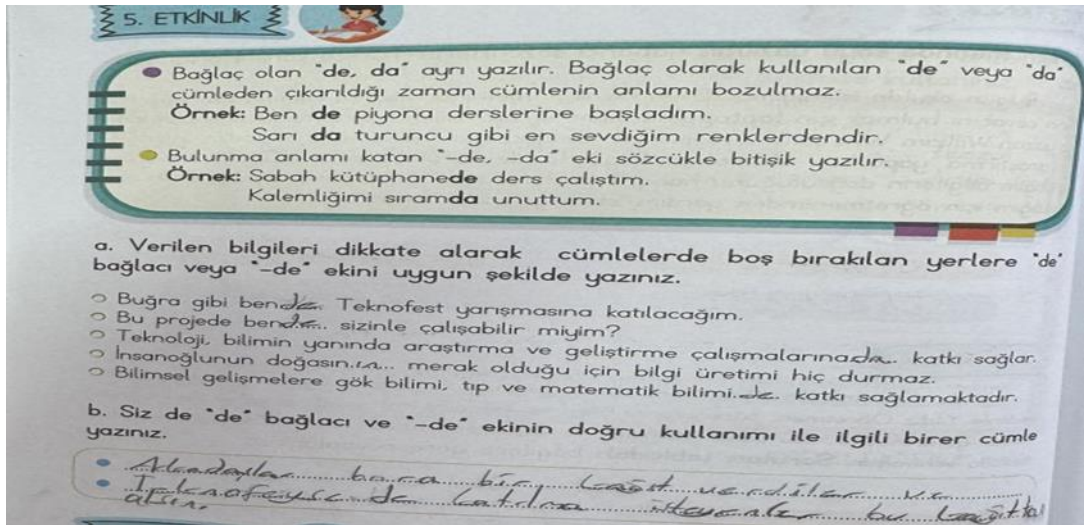 5. ETKİNLİK
Bağlaç olan "de, da" ayrı yazılır. Bağlaç olarak kullanılan "de" veya "da"
cümleden çıkarıldığı zaman cümlenin anlamı bozulmaz.
Örnek: Ben de piyona derslerine başladım.
Sarı da turuncu gibi en sevdiğim renklerdendir.
Bulunma anlamı katan "-de, -da" eki sözcükle bitişik yazılır.
Örnek: Sabah kütüphanede ders çalıştım.
Kalemliğimi sıramda unuttum.
a. Verilen bilgileri dikkate alarak cümlelerde boş bırakılan yerlere "de"
bağlacı veya "-de" ekini uygun şekilde yazınız.
Buğra gibi ben de Teknofest yarışmasına katılacağım.
Bu projede ben de sizinle çalışabilir miyim?
Teknoloji, bilimin yanında araştırma ve geliştirme çalışmalarına da katkı sağlar.
İnsanoğlunun doğasın merak olduğu için bilgi üretimi hiç durmaz.
Bilimsel gelişmelere gök bilimi, tıp ve matematik bilimi de katkı sağlamaktadır.
b. Siz de "de" bağlacı ve "-de" ekinin doğru kullanımı ile ilgili birer cümle
yazınız.
bana bir kağıt verdiler ve
de katılma isteyenler bu
alsın.